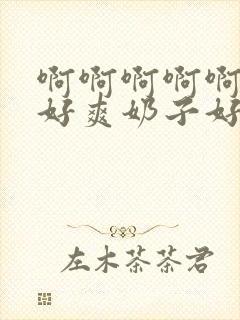 啊啊啊啊啊
好爽奶子好
左木茶茶君